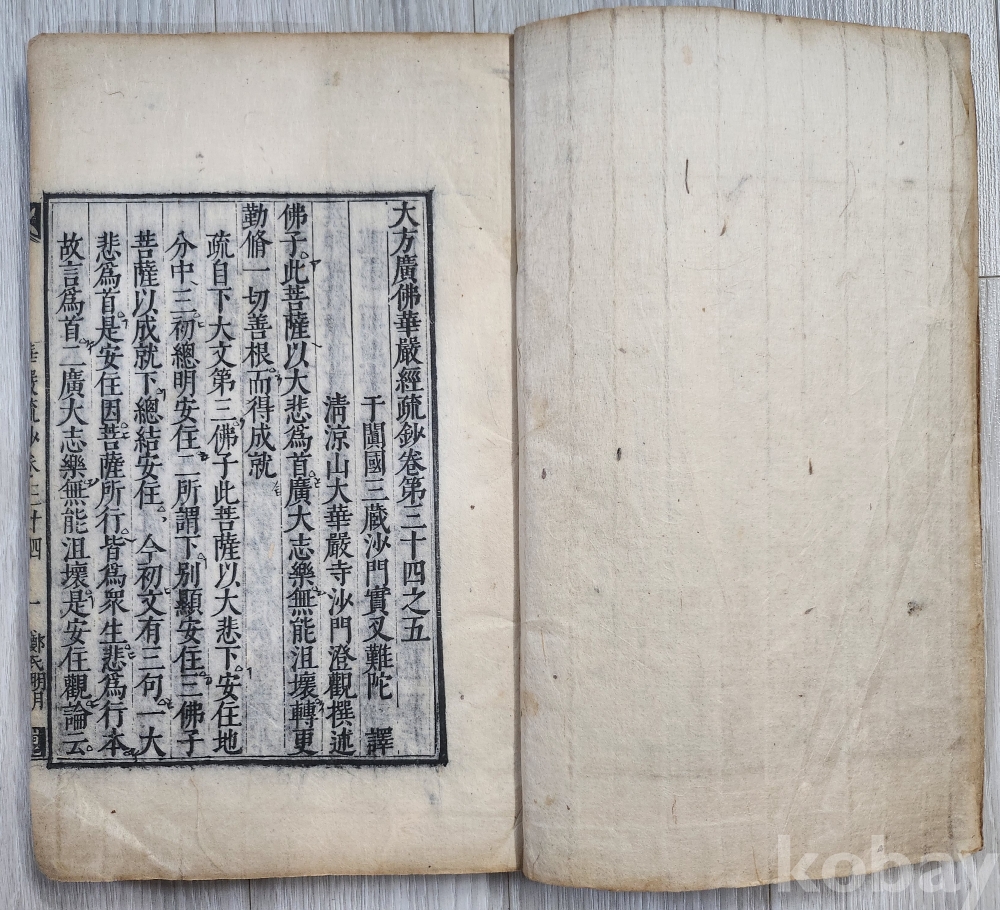 大方廣佛華嚴經疏鈔卷第三十四之五
于闐國三藏沙門實叉難陀 譯
清涼山大華嚴寺沙門澄觀撰述
佛子此菩薩以大悲爲首廣大志樂無能沮壞轉更
勤脩一切善根而得成就
疏自下大文第三佛子此菩薩以大悲下安住地
分中三初總明安住二所謂下別顯安住三佛子
菩薩以成就下總結安住今初文有三句一大
悲爲首是安住因菩薩所行皆爲衆生悲爲行本
故言爲首二廣大志樂無能沮壞是安住觀論云
華嚴疏鈔卷三十四 一 鄭氏明月
kobay